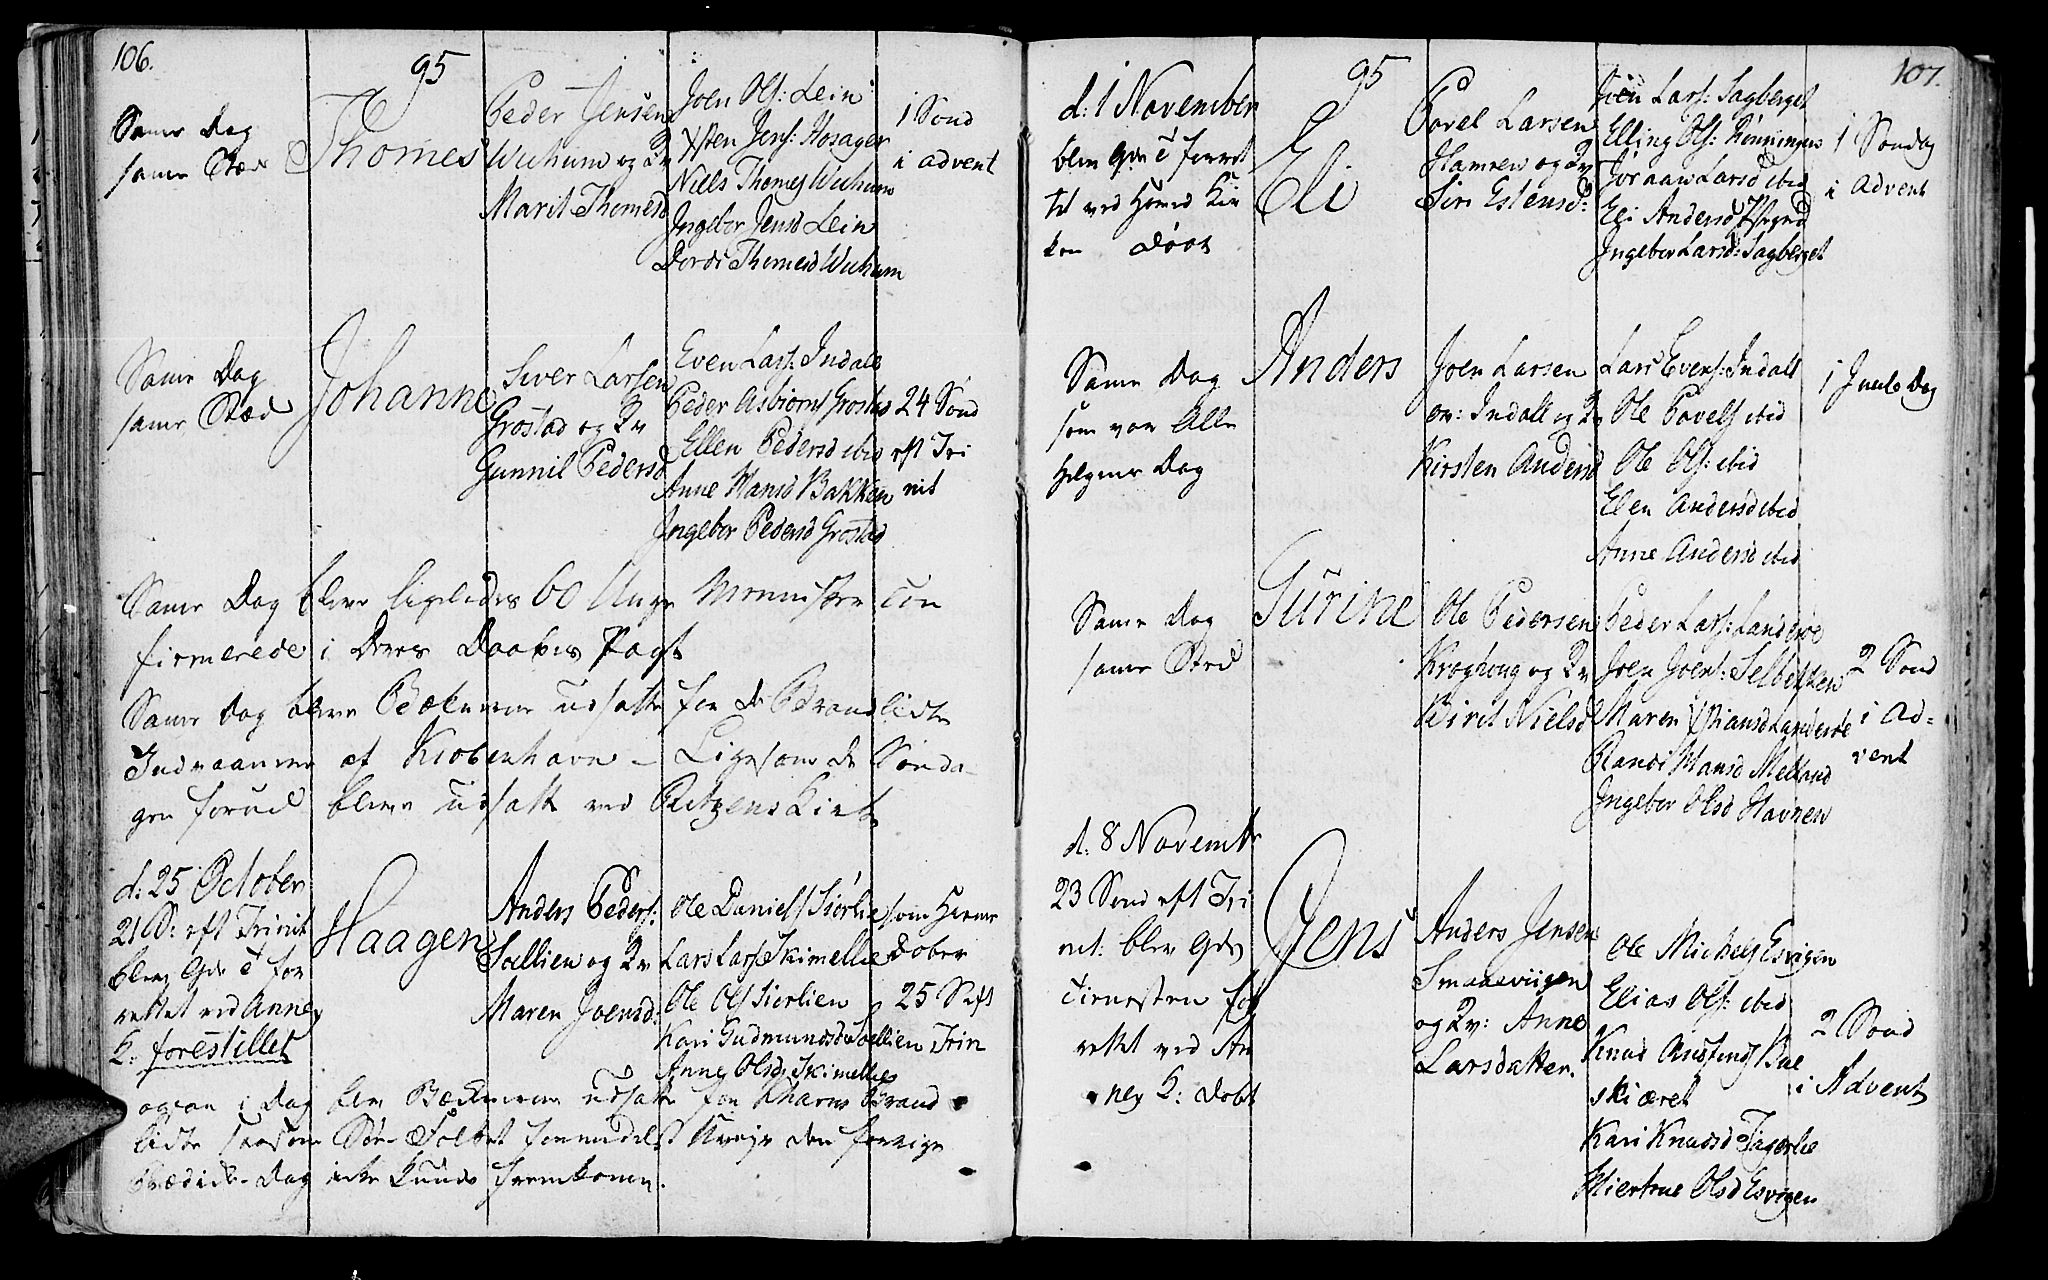 106.
95
Same Dag
same Stæd
Thomes
Peder Jensen
Wuhum og Kv
Marit Thomesd
Joen Ols: Lein
Ysten Jens: Hosager
Niels Thomes Wuhum
Ingebor Jensd Lein
Dordi Thomesd Wuhum
1 Sønd
i advent
Same Dag
same Stæd
Johanne
Siver Larsen
Grostad og Kv
Gunnil Pedersd
Even Lars: Indall
Peder Asbiørns Grostad
Ellen Pedersd ibid
Anne Hansd Bakken
Ingebor Pedersd Grostad
24 Sønd
eft Tri
nit
Same Dag bleve ligeledes 60 Unge Mennisker Con
firmerede i Deres Daabes Pagt
Same Dag bleve Bækkenerne udsatte for de Brandlidte
Indvaanere af Kiøbenhavn – Ligesom de Sønda-
gen forud bleve udsatt ved Kirke
d: 25 October
21 S: eft Trinit
blev Gds T for
rettet ved Annex
K: forestillet
Haagen
Anders Peders:
Sællien og Kv
Maren Joensd:
Ole Daniels Siørlie
Lars Lars Skimellie
Ole Ols Siorlien
Kari Gudmundsd Sællien
Anne Olsd: Skimellie
som Hieme
Døber
25 S eft
Trin
ogsaa i Dag blev Bækkenerne udsatte for Brand
lidte saasom Søe-Folket formedelst Uveyr den forrige
Prædike-Dag ikke kunde fremkomme.
107.
95
d: 1 November
blev Gds T forret
tet ved Hoved Kir
ken Døbt
Eli
Povel Larsen
Hamren og Kv
Siri Estensd:
Joen Lars: Sagberget
Elling Ols: Rønningen
Jøraan Larsd ibid
Eli Andersd
Ingebor Larsd: Sagberget
1 Søndag
i Advent
Same Dag
som var Alle
Helgens Dag
Anders
Joen Larsen
øv: Indall og Kv
Kirsten Andersd
Lars Evens: Indall
Ole Povels ibid
Ole Ols: ibid
Elen Andersd ibid
Anne Andersd ibid
1 Juule Dag
Same Dag
same Sted
Gurine
Ole Pedersen
Kroghoug og Kv
Birit Nielsd
Peder Lars: Landerøe
Joen Joens: Selbekken
Maren Landerøe
Randi Hansd Melland
Ingebor Olsd Havnen
2 Sønd
i Ad-
vent
d: 8 Novembr
23 Sønd eft Tri
nit: blev Gds
Tienesten for
rettet ved An
nex K: Døbt
Jens
Anders Jensen
Smaaeviigen
og Kv: Anne
Larsdatter.
Ole Michels Esvigen
Elias Ols: ibid
Knud Austends Kal
skiæret
Kari Knudsd Fagerlie
Hiertrue Olsd Esvigen
2 Sønd
i Advent